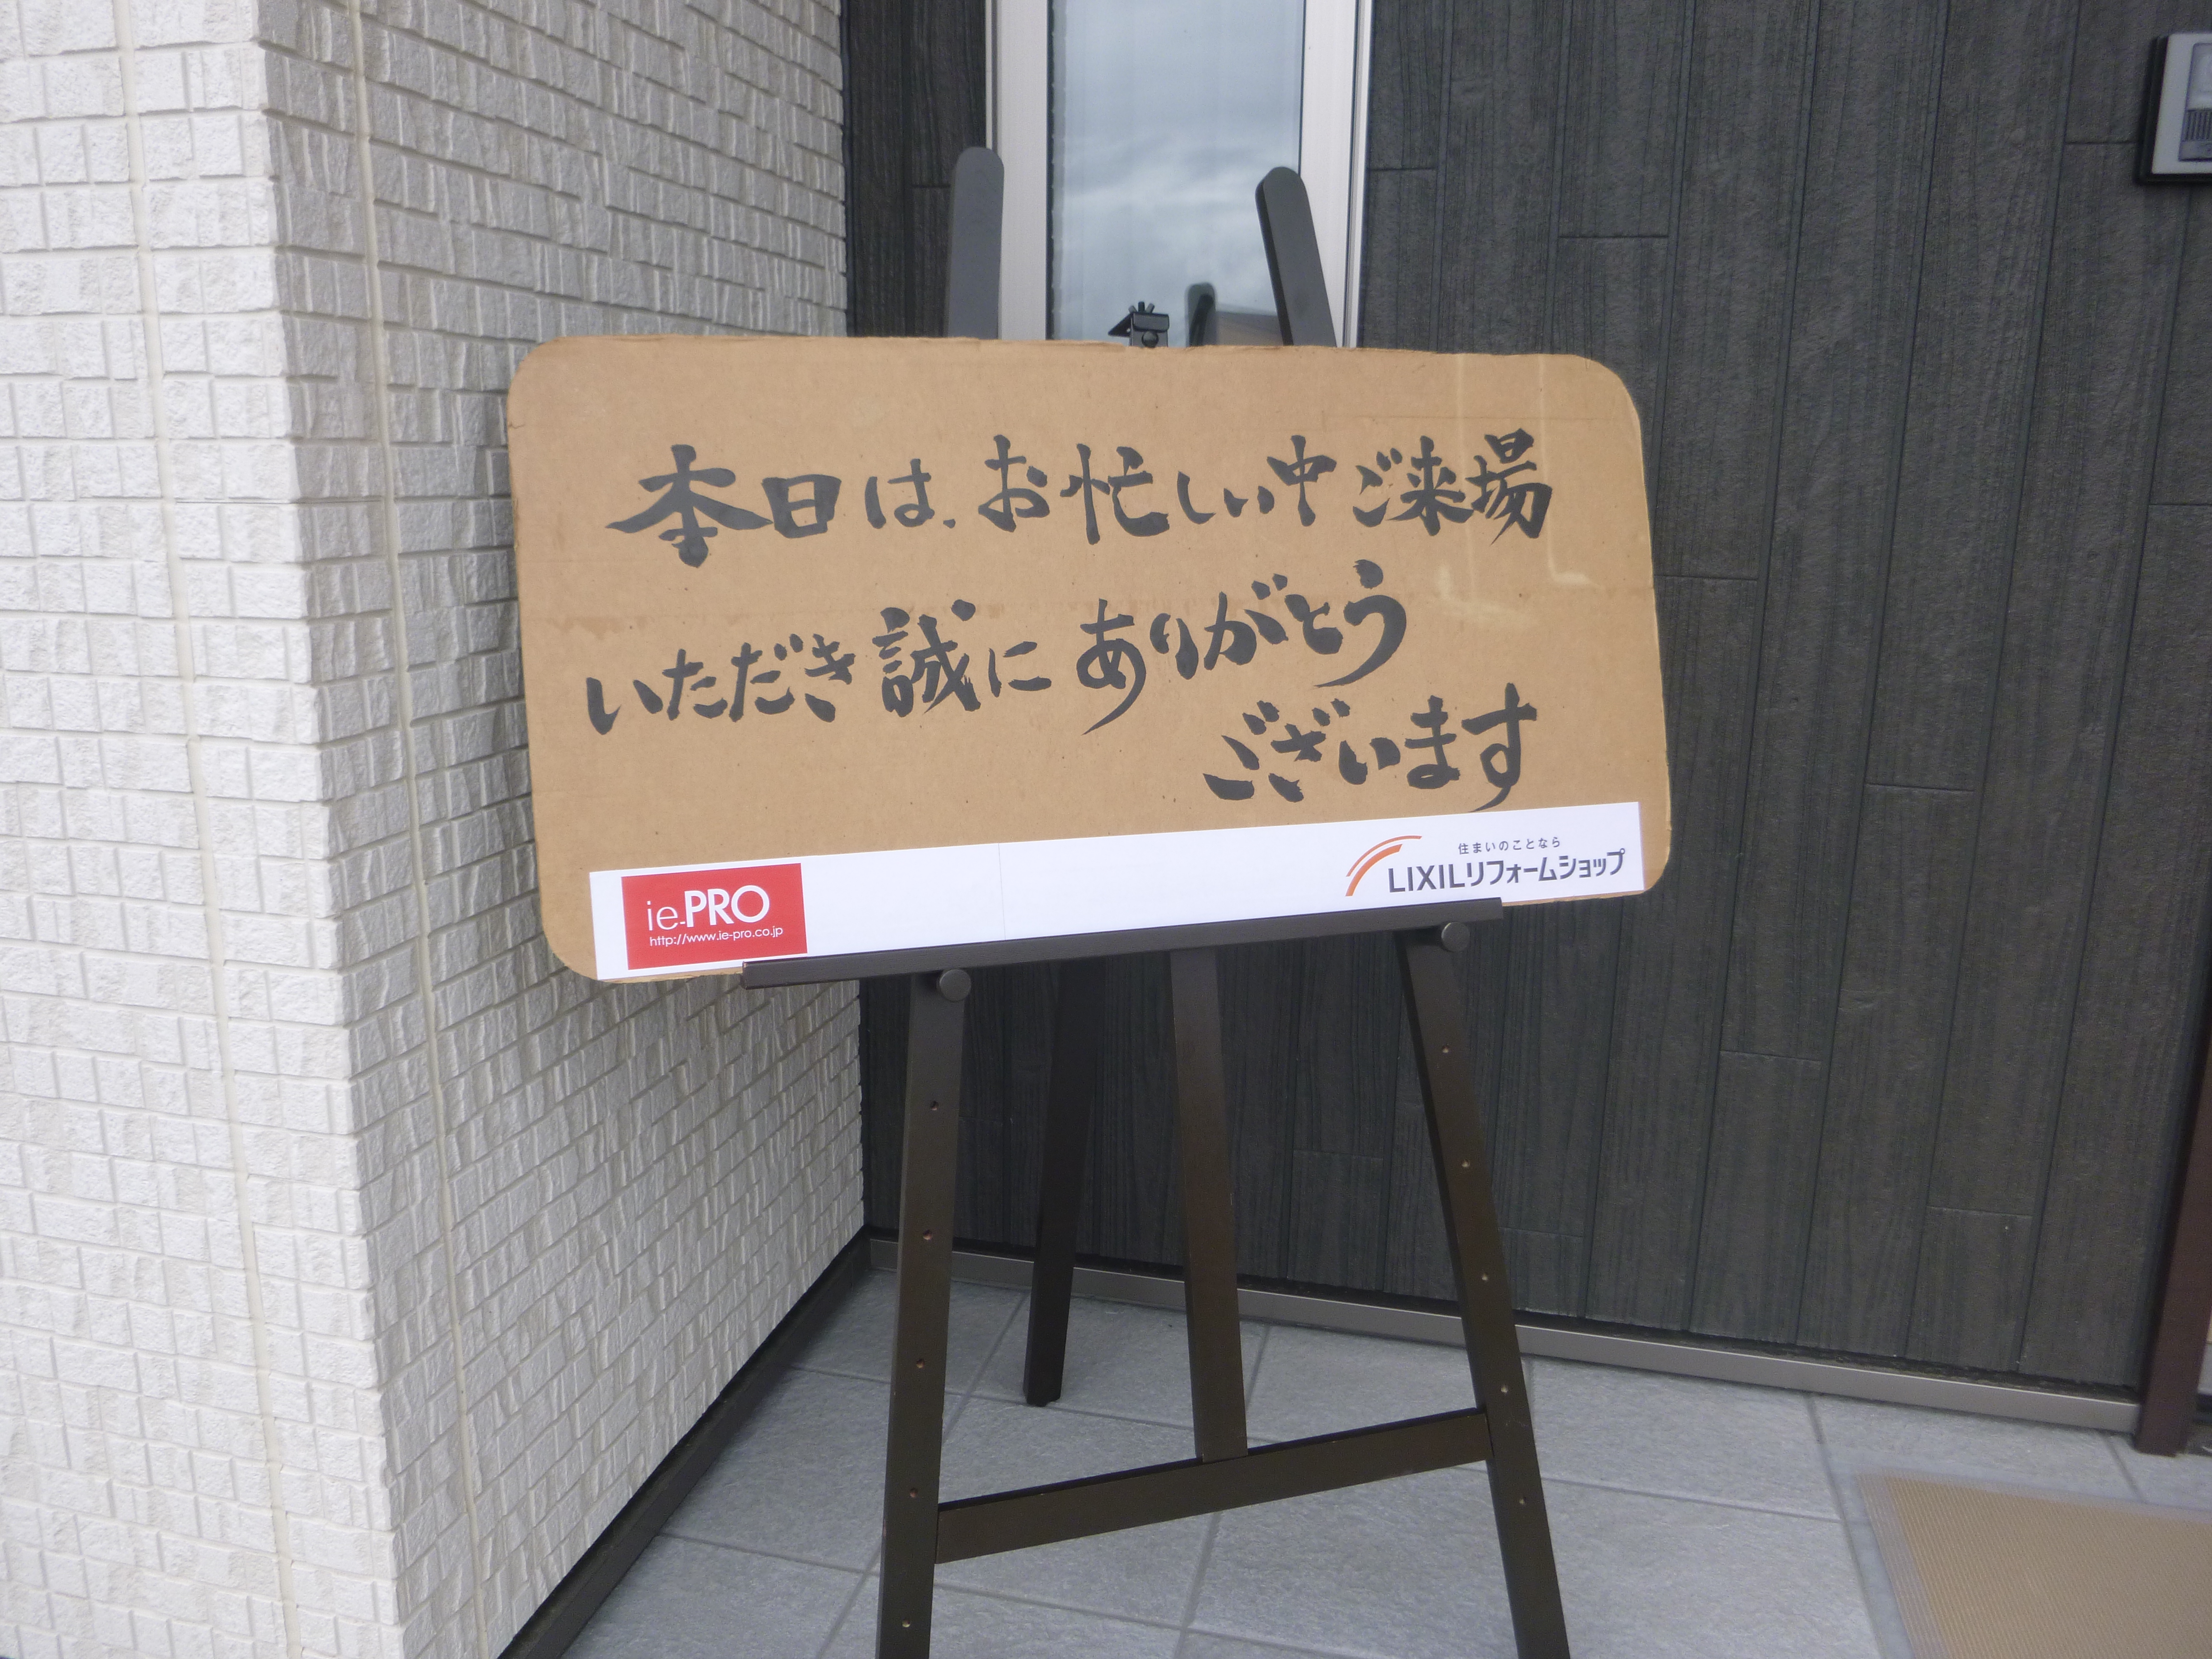 本日は、お忙しい中ご来場
いただき誠にありがとう
ございます
ie-PRO
http://www.ie-pro.co.jp
住まいのことなら
LIXILリフォームショップ